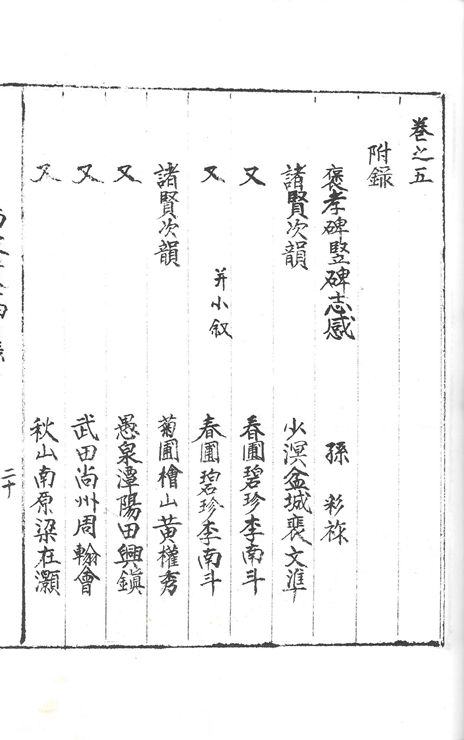 卷之五
附錄
褒孝碑竪碑志感 孫 彩祢
諸賢次韻 少溟盆城裵文準
又 春圃碧珍李南斗
又 并小叙 春圃碧珍李南斗
諸賢次韻 菊圃檜山黃權秀
又 愚泉潭陽田興鎭
又 武田尚州周翰會
又 秋山南原梁在灝
二十